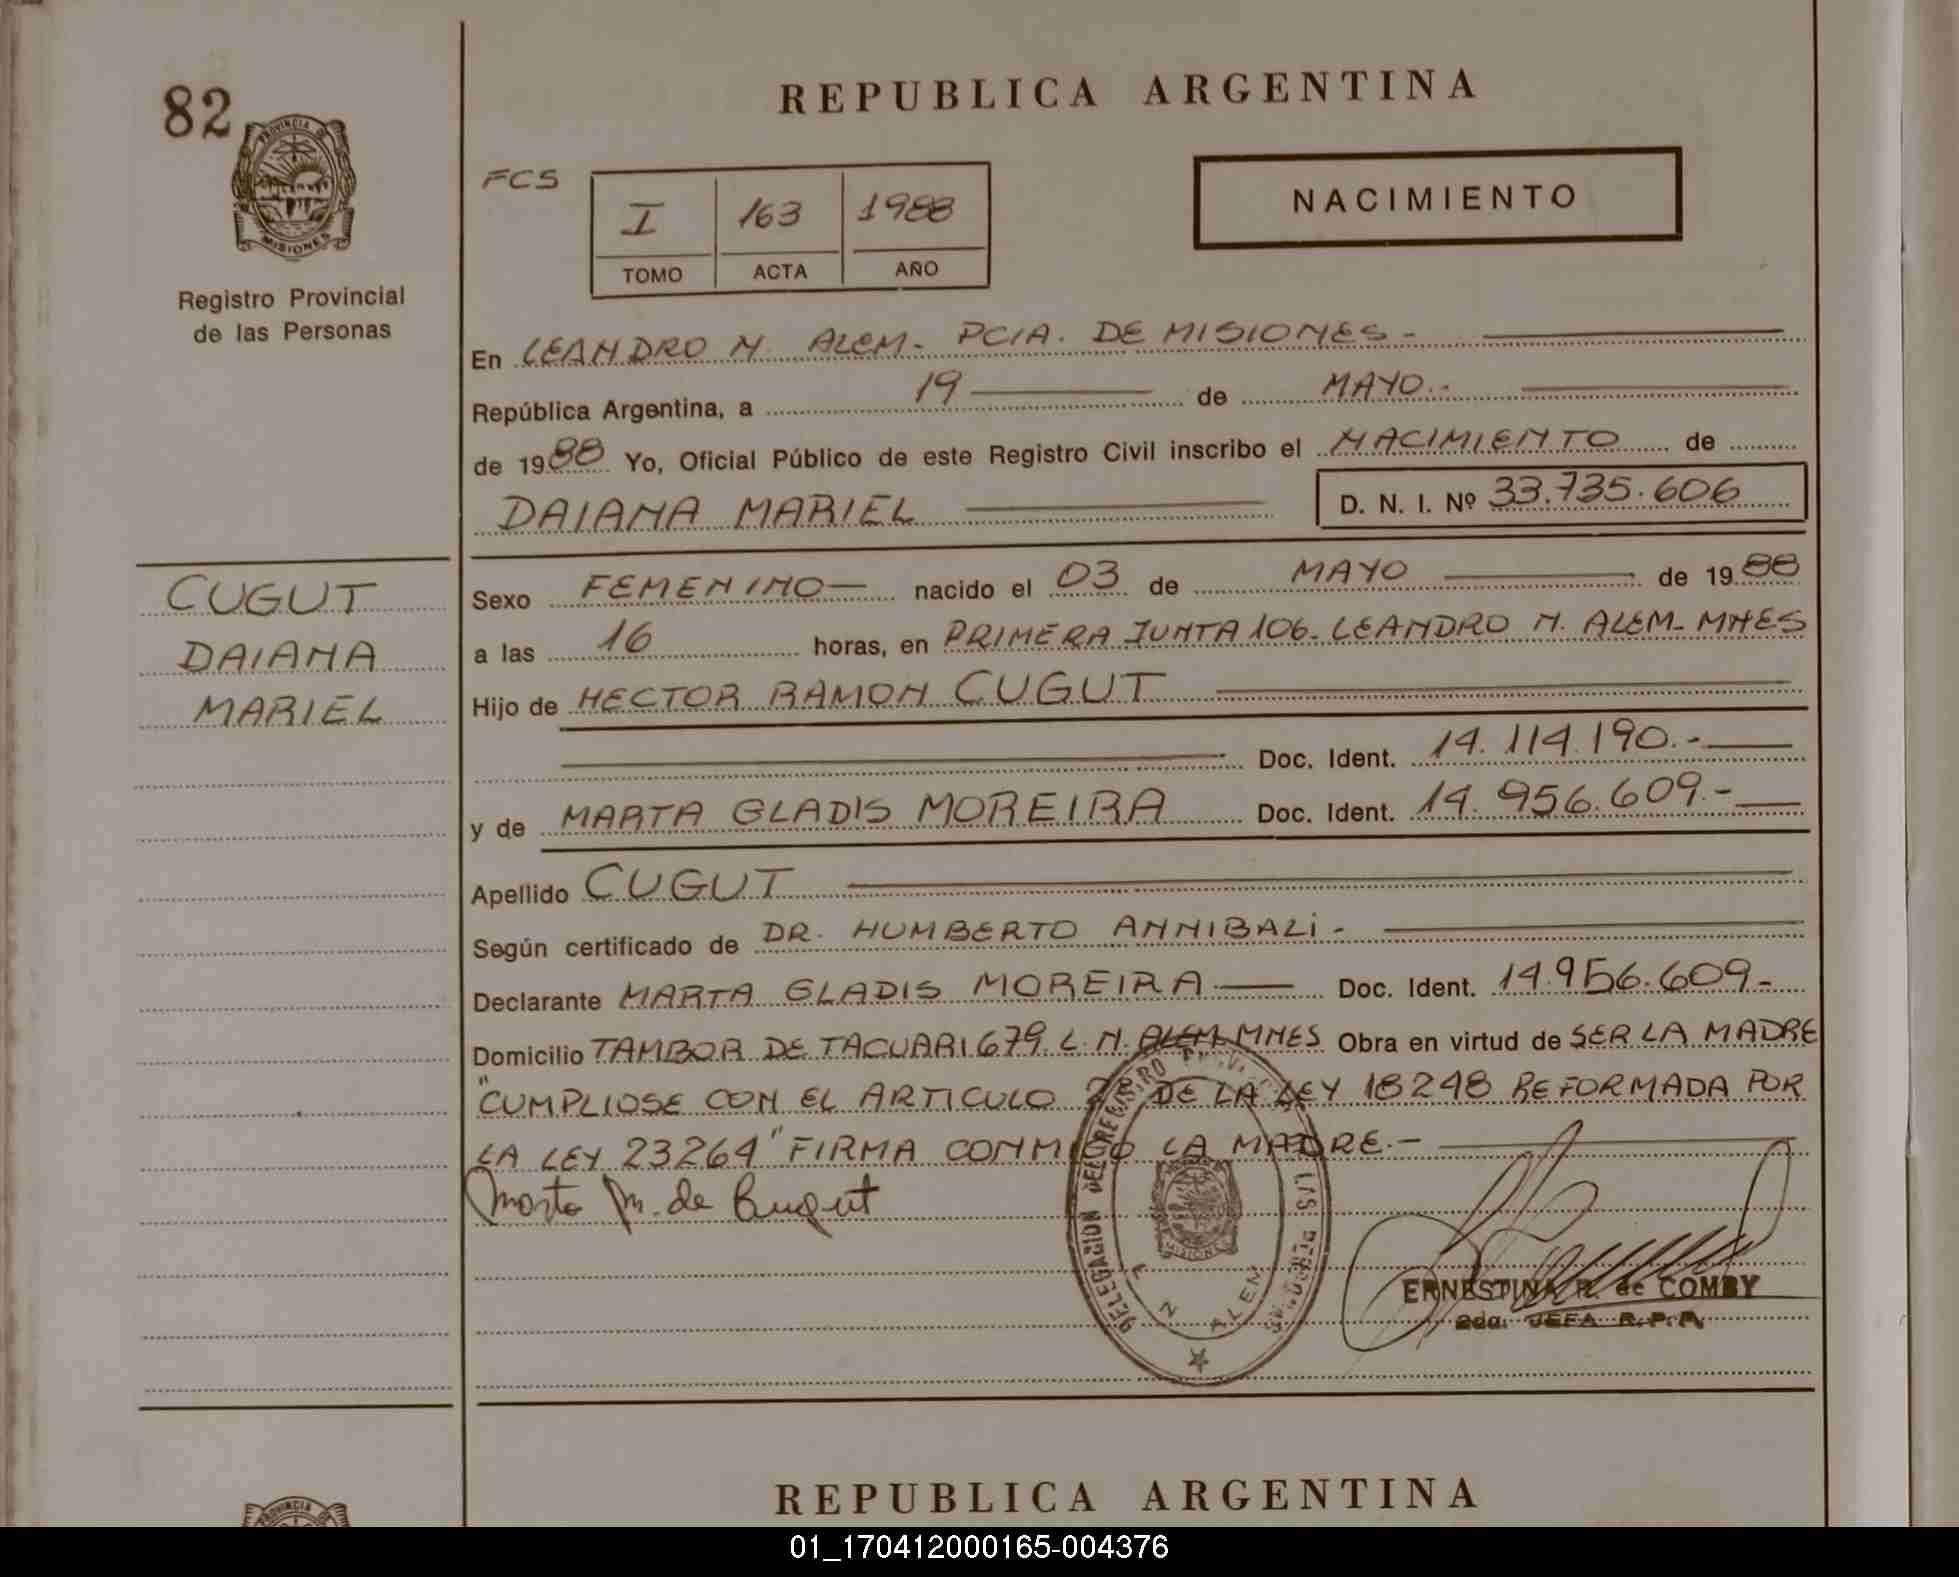 82
PROVINCIA DE
MISIONES
Registro Provincial
de las Personas
REPUBLICA ARGENTINA
FCS
I 163 1988
TOMO ACTA AÑO
NACIMIENTO
En LEANDRO N. ALEM. PCIA. DE MISIONES.-
República Argentina, a 19 de MAYO.-
de 1988 Yo, Oficial Público de este Registro Civil inscribo el NACIMIENTO de
DAIANA MARIEL D. N. I. Nº 33.735.606
CUGUT
DAIANA
MARIEL
Sexo FEMENINO nacido el 03 de MAYO de 1988
a las 16 horas, en PRIMERA JUNTA 106. LEANDRO N. ALEM. MNES
Hijo de HECTOR RAMON CUGUT
Doc. Ident. 14.114.190.-
y de MARTA GLADIS MOREIRA Doc. Ident. 14.956.609.-
Apellido CUGUT
Según certificado de DR. HUMBERTO ANNIBALI.-
Declarante MARTA GLADIS MOREIRA Doc. Ident. 14.956.609.-
Domicilio TAMBOR DE TACUARI 679. L. N. ALEM. MNES Obra en virtud de SER LA MADRE
"CUMPLIOSE CON EL ARTICULO DE LA LEY 18248 REFORMADA POR
LA LEY 23264" FIRMA CONMIGO LA MADRE.-
Marta M. de Cugut
DELEGACION DEL REGISTRO LAS PERSONAS
MISIONES
L N ALEM
ERNESTINA R. de COMBY
2da. JEFA R.P.P.
REPUBLICA ARGENTINA
PROVINCIA
01_170412000165-004376